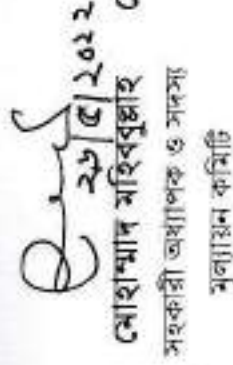 ২৬/৫/২০২২
মোহাম্মাদ মহিববুল্লাহ
সহকারী অধ্যাপক ও সদস্য
মূল্যায়ন কমিটি